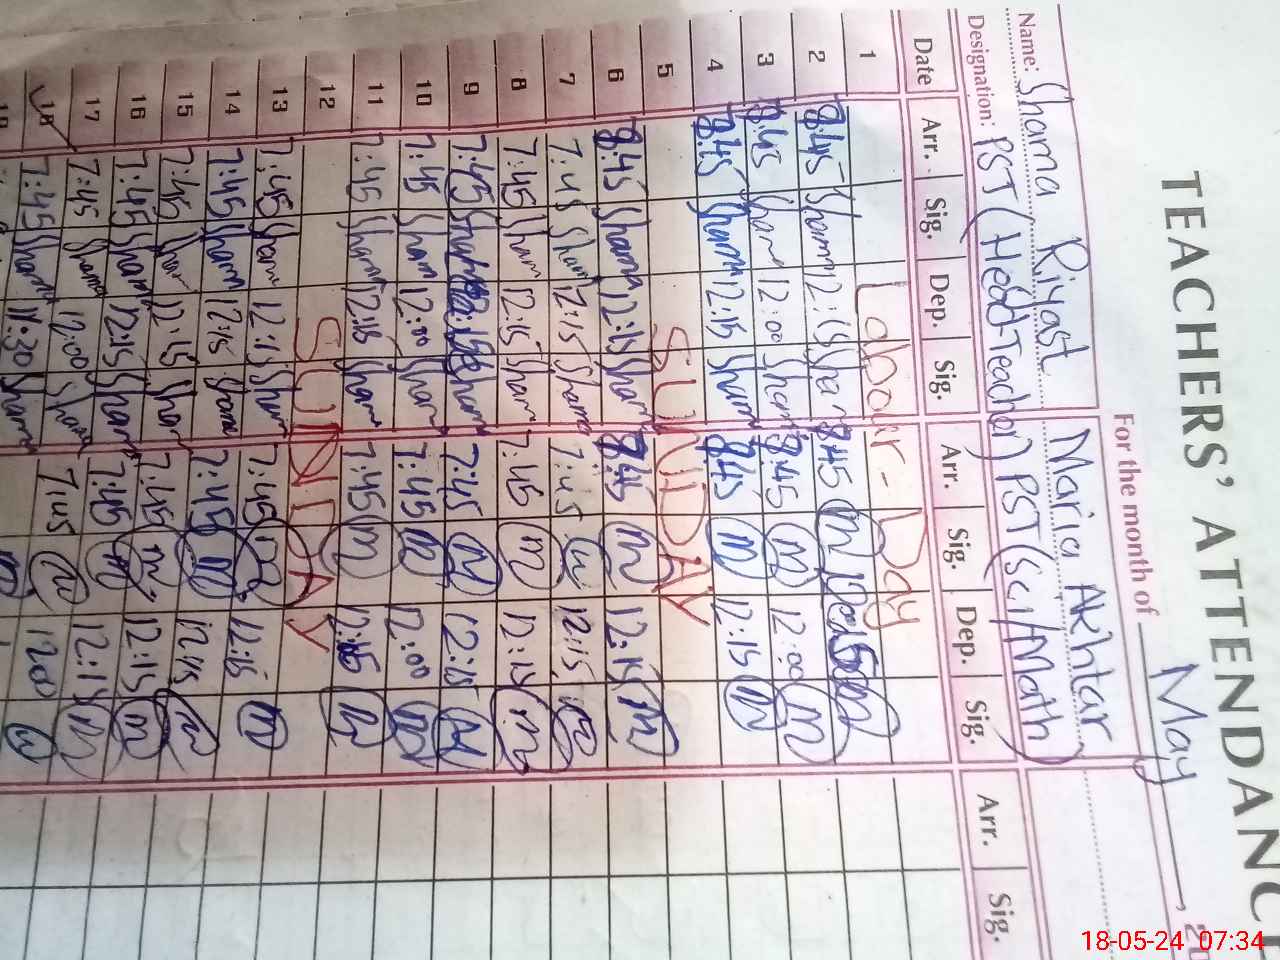 TEACHERS' ATTENDANCE
For the month of May, 20
Name: Shama Riyast Maria Akhtar
Designation: PST (Head-Teacher) PST (Sci/Math)
Date Arr. Sig. Dep. Sig. Arr. Sig. Dep. Sig. Arr. Sig.
1 Labour-Day
2 8:45 Sham 12:15 Sham 8:45 m
3 8:45 Sham 12:00 Sham 8:45 m 12:00 m
4 8:45 Sham 12:15 Sham 8:45 m 12:15 m
5 SUNDAY
6 8:45 Shama 12:15 Sham 8:45 m 12:15 m
7 7:45 Sham 12:15 Shama 7:45 m 12:15 m
8 7:45 Sham 12:15 Sham 7:45 m 12:15 m
9 7:45 Sham 7:45 m 12:15 m
10 7:45 Sham 12:00 Sham 7:45 m 12:00 m
11 7:45 Sham 12:15 Sham 7:45 m 12:15 m
12 SUNDAY
13 7:45 Sham 12:15 Sham 7:45 m 12:15 m
14 7:45 Sham 12:15 Shama 7:45 m 12:15 m
15 7:45 Sham 12:15 Sham 7:45 m 12:15 m
16 7:45 Sham 12:15 Sham 7:45 m 12:15 m
17 7:45 Shama 12:00 Shama 7:45 m 12:00 m
18 7:45 Shama 11:30 Shama m
19
18-05-24 07:34